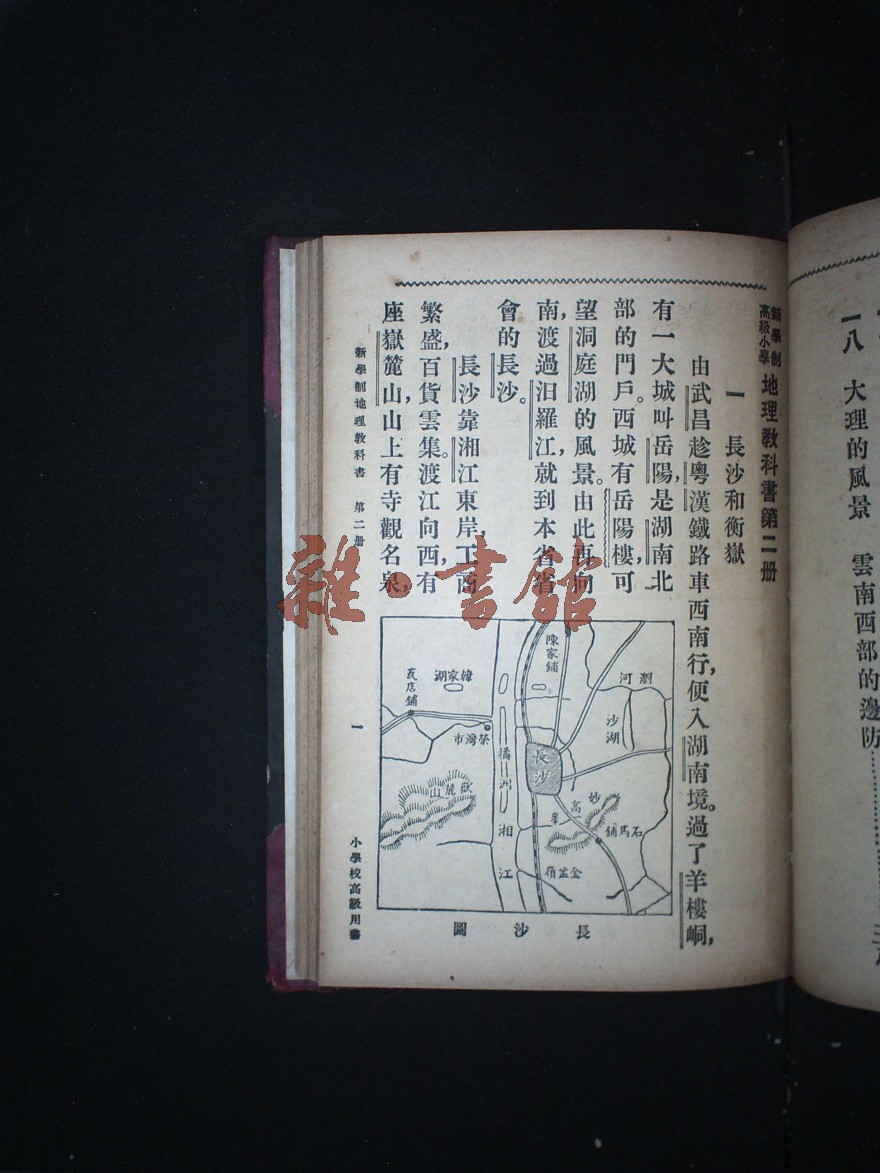 新學制
高級小學
地理教科書第二册
一 長沙和衡嶽
由武昌趁粵漢鐵路車西南行,便入湖南境。過了羊樓峒,
有一大城叫岳陽,是湖南北
部的門戶。西城有岳陽樓,可
望洞庭湖的風景。由此再向
南,渡過汨羅江,就到本省省
會的長沙。
長沙靠湘江東岸,工商
繁盛,百貨雲集。渡江向西,有
座嶽麓山,山上有寺觀名泉,
陳家鋪
瀏河
沙湖
韓家湖
瓦店鋪
滎灣市
長沙
橘洲
湘江
嶽麓山
妙高峯
石馬鋪
金盆嶺
長沙圖
新學制地理教科書 第二册
一
小學校高級用書
一八 大理的風景 雲南西部的邊防
雜·書館